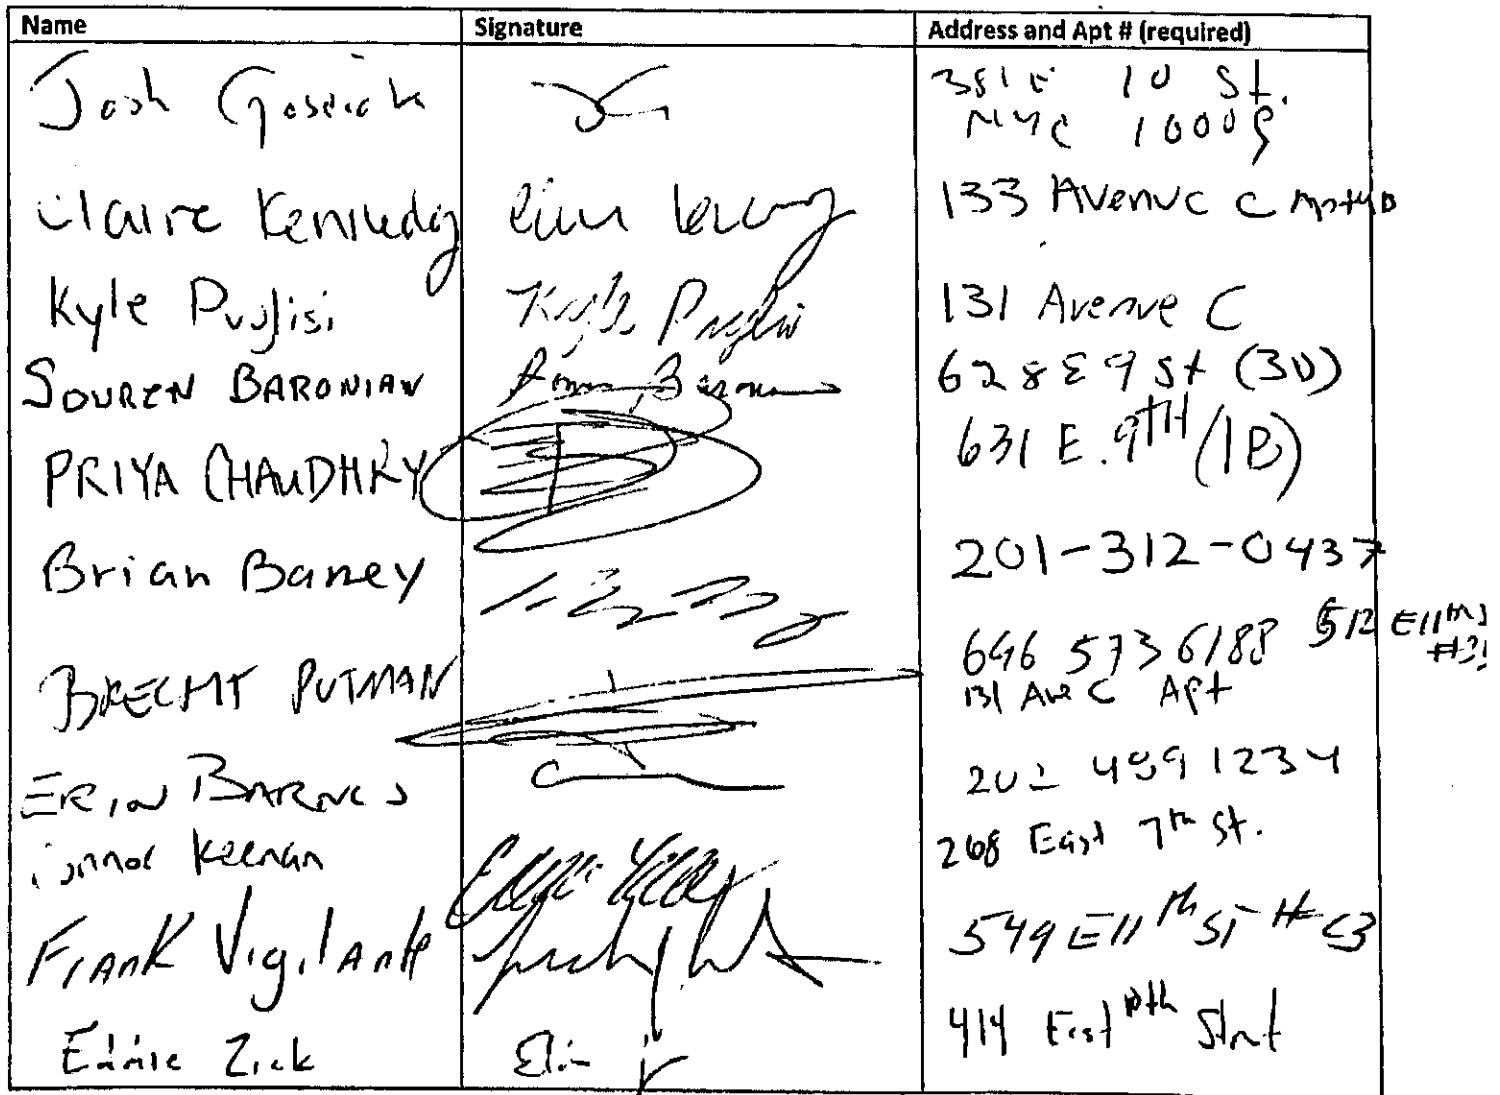 Name Signature Address and Apt # (required)
Josh 381 E 10 St.
NYC 10009
Claire Kennedy 133 Avenue C Apt 4D
Kyle Puglisi Kyle Puglisi 131 Avenue C
SOUREN BARONIAN 628 E 9 St (3D)
PRIYA CHAUDHRY 631 E. 9TH (1B)
Brian Baney 201-312-0437
512 E 11th
BRECHT PUTMAN 646 573 6188
131 Ave C Apt
ERIN BARNES 1234
Connor Keenan 268 East 7th St.
Frank Vigilante 549 E 11th ST # C3
Eddie Zick 414 East 10th Street